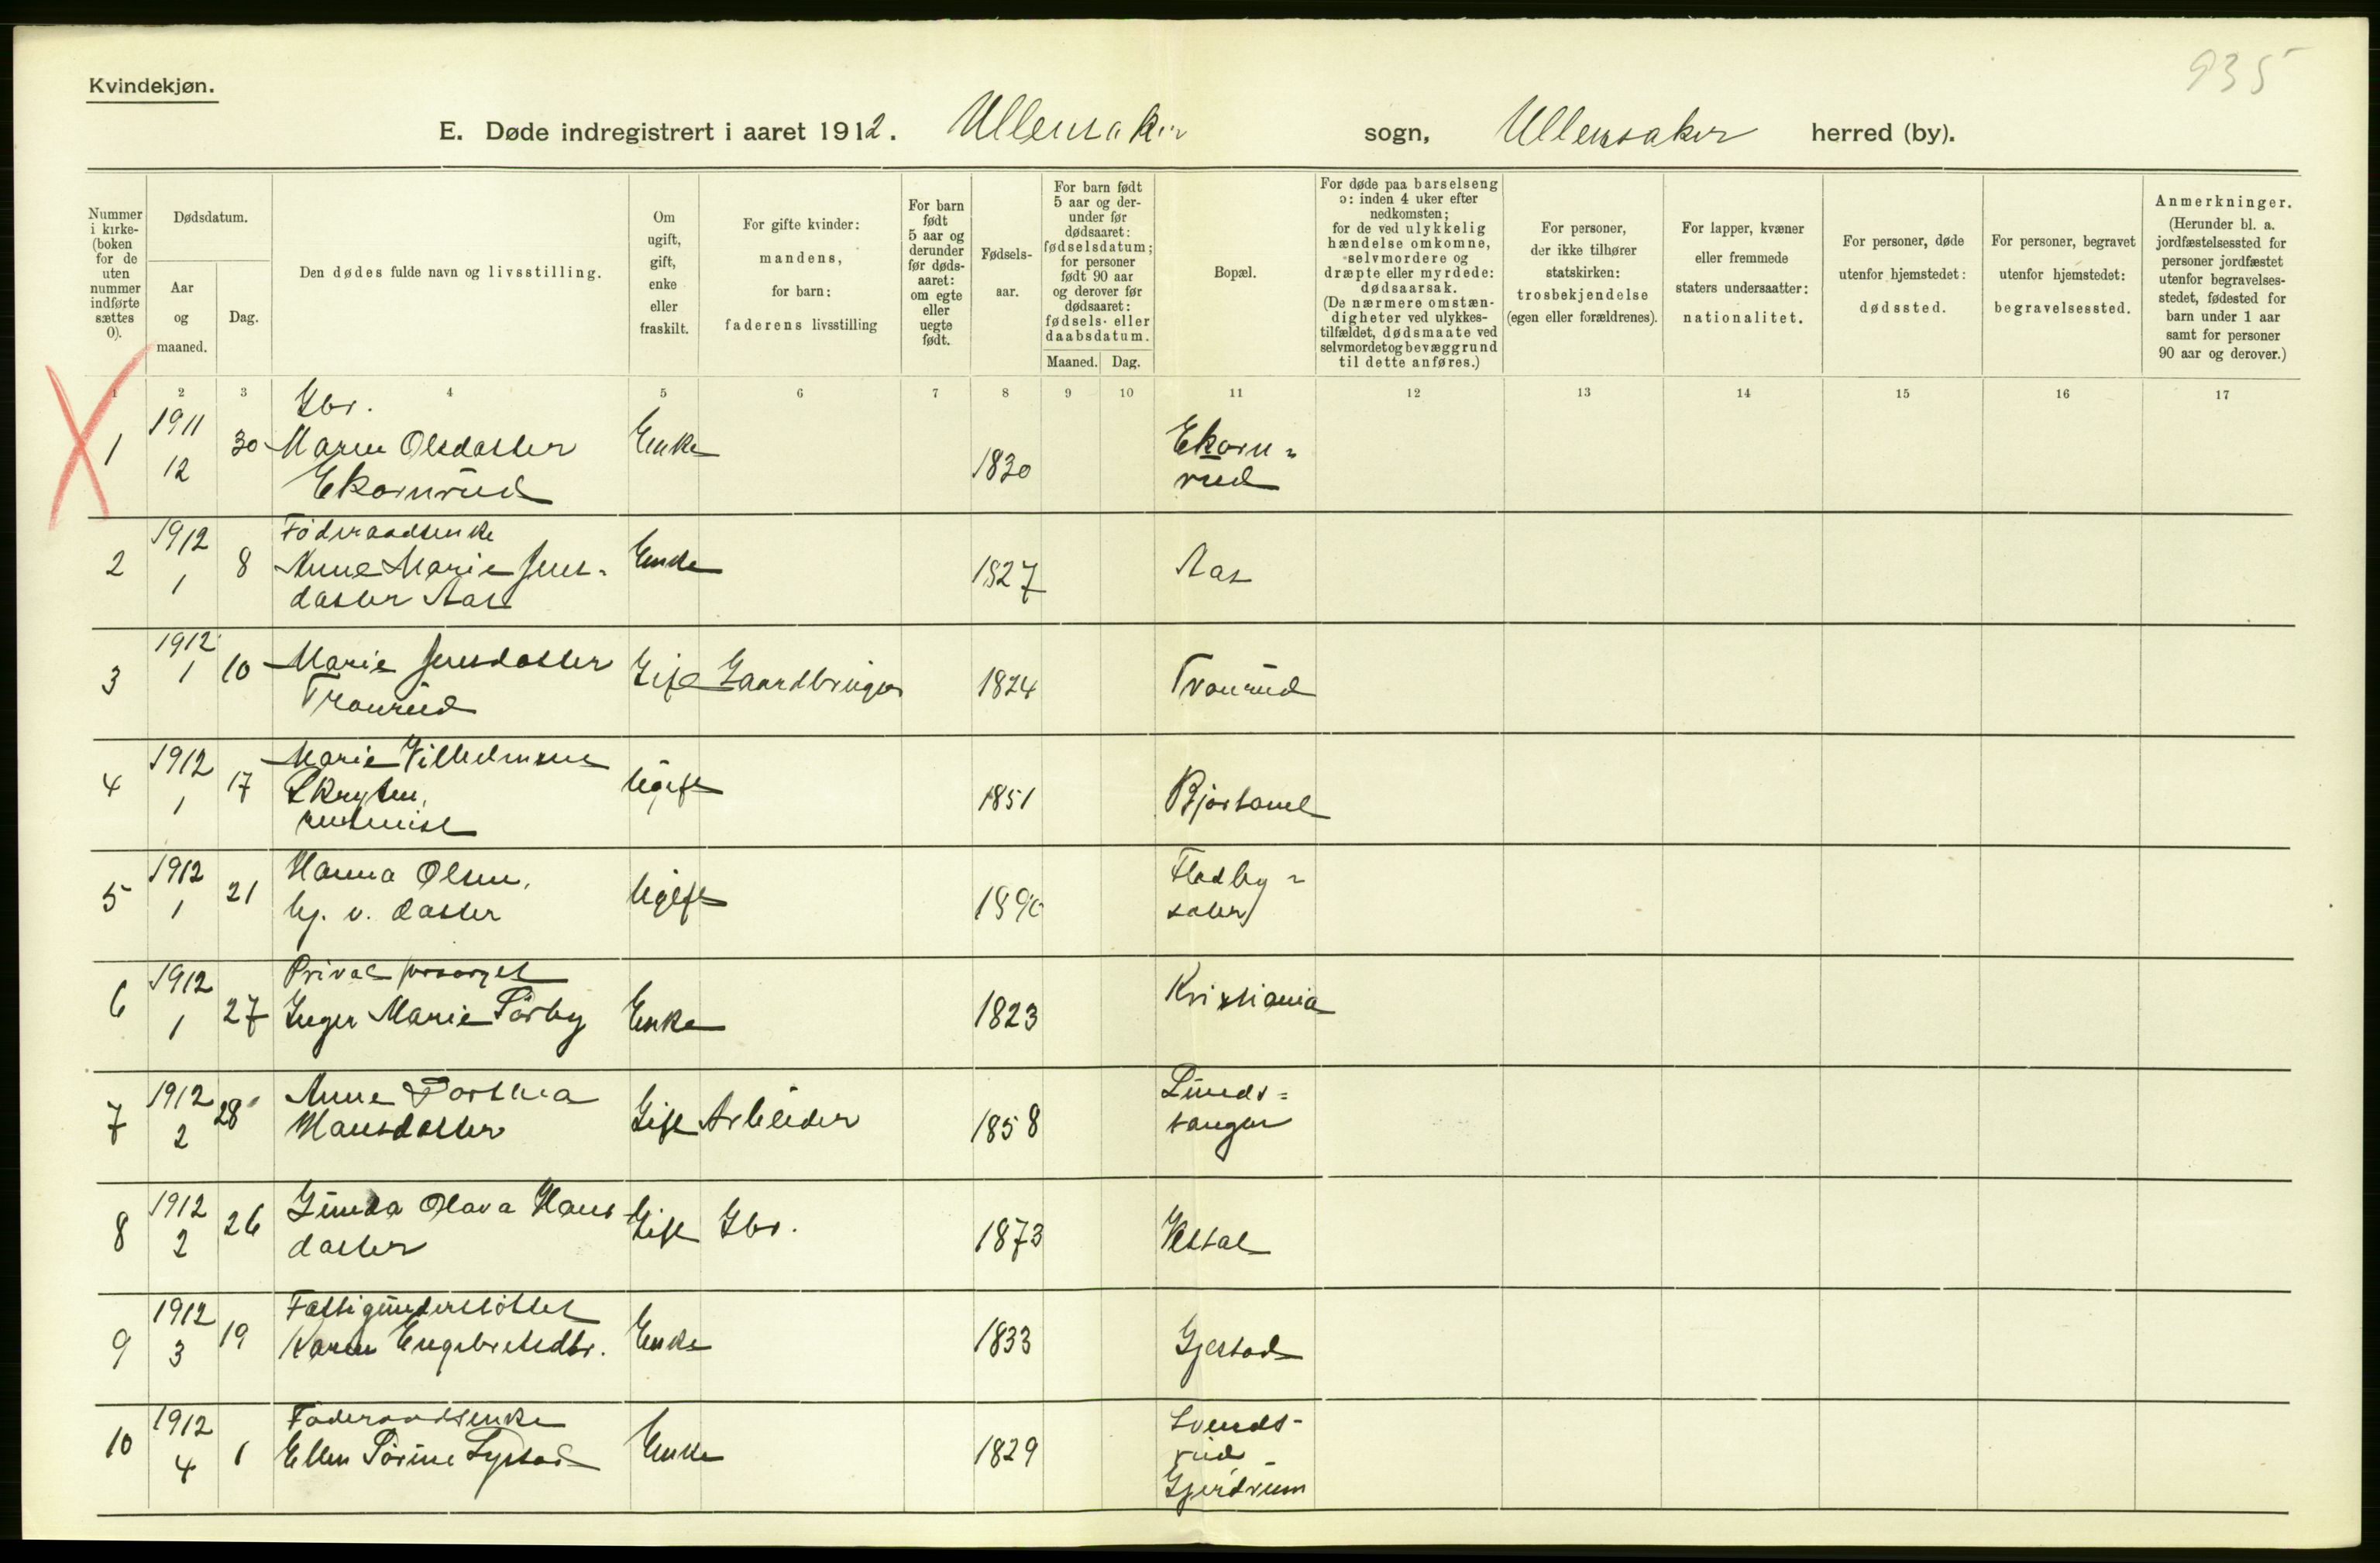 935
Kvindekjøn.
E. Døde indregistrert i aaret 1912. Ullensaker sogn, Ullensaker herred (by).
Nummer
i kirke-
(boken
for de
uten
nummer
indførte
sættes
0).
Dødsdatum.
Aar
og
maaned.
Dag.
Den dødes fulde navn og livsstilling.
Om
ugift,
gift,
enke
eller
fraskilt.
For gifte kvinder:
mandens,
for barn:
faderens livsstilling
For barn
født
5 aar og
derunder
før døds-
aaret:
om egte
eller
uegte
født.
Fødsels-
aar.
For barn født
5 aar og der-
under før
dødsaaret:
fødselsdatum;
for personer
født 90 aar
og derover før
dødsaaret:
fødsels- eller
daabsdatum.
Maaned. Dag.
Bopæl.
For døde paa barselseng
ɔ: inden 4 uker efter
nedkomsten;
for de ved ulykkelig
hændelse omkomne,
selvmordere og
dræpte eller myrdede:
dødsaarsak.
(De nærmere omstæn-
digheter ved ulykkes-
tilfældet, dødsmaate ved
selvmordet og bevæggrund
til dette anføres.)
For personer,
der ikke tilhører
statskirken:
trosbekjendelse
(egen eller forældrenes).
For lapper, kvæner
eller fremmede
staters undersaatter:
nationalitet.
For personer, døde
utenfor hjemstedet:
dødssted.
For personer, begravet
utenfor hjemstedet:
begravelsessted.
Anmerkninger.
(Herunder bl. a.
jordfæstelsessted for
personer jordfæstet
utenfor begravelses-
stedet, fødested for
barn under 1 aar
samt for personer
90 aar og derover.)
1 2 3 4 5 6 7 8 9 10 11 12 13 14 15 16 17
1 1911 12 30 Gbr.
Maren Olsdatter
Ekornrud
Enke 1830 Ekorn=
rud
2 1912 1 8 Föderaadsenke
Anne Marie Jens-
datter Aas
Enke 1827 Aas
3 1912 1 10 Marie Jensdatter
Tronrud
Gift Gaardbruger 1824 Tronrud
4 1912 1 17 Marie Vilhelmine
Skryten,
rentenist
Ugift 1851
5 1912 1 21 Hanna Olsen,
hj. v. datter
Ugift 1890 Fladby=
sæter
6 1912 1 27 Privat forsørget
Inger Marie Sörby
Enke 1823 Kristiania
7 1912 2 28 Anne Dorthea
Hansdatter
Gift Arbeider 1858 Lunds=
tangen
8 1912 2 26 Gunda Olava Hans
datter
Gift Gbr. 1873
9 1912 3 19 Fattigunderstöttet
Karen Engebretsdtr.
Enke 1833 Gjestad
10 1912 4 1 Föderaadsenke
Ellen Sörine Lystad
Enke 1829 Svends-
rud
Gjerdrum